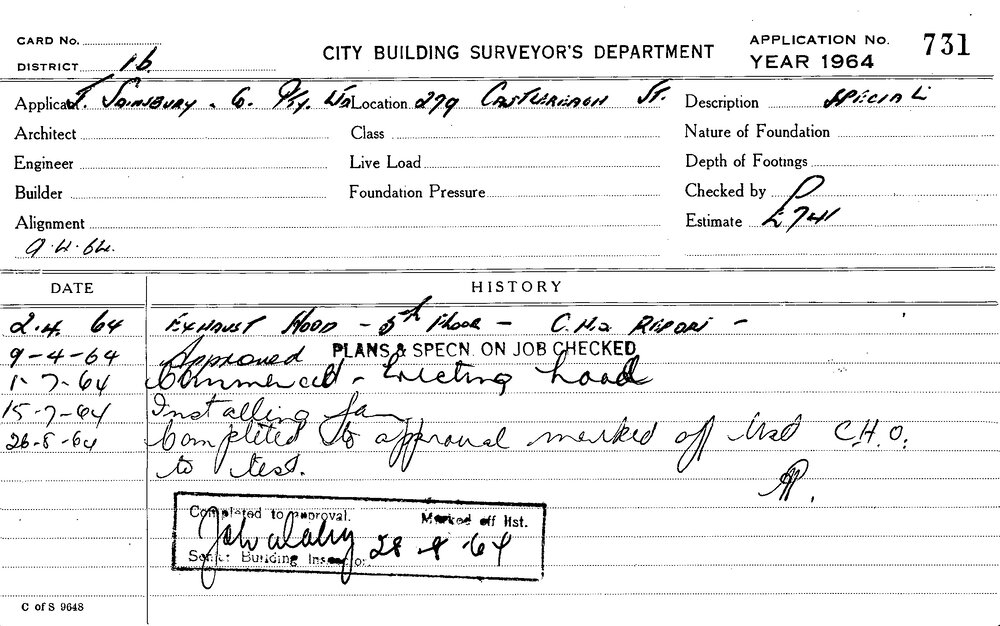 CARD No.
DISTRICT 1b.
CITY BUILDING SURVEYOR'S DEPARTMENT
APPLICATION No. 731
YEAR 1964
Applicant J. SAINSBURY & Co. Pty. Ltd Location 279 CASTLEREAGH ST. Description SPECIAL
Architect Class Nature of Foundation
Engineer Live Load Depth of Footings
Builder Foundation Pressure Checked by
Alignment Estimate £741
9.4.64.
DATE HISTORY
2.4.64 EXHAUST HOOD - 5th Floor - C.H.O REPORT -
9-4-64 Approved PLANS & SPECN. ON JOB CHECKED
1-7-64 Commenced - Erecting hood
15-7-64 Installing fan
26-8-64 Completed to approval marked off list C.H.O.
to test.
Completed to approval. Marked off list.
28-8-64
Senior Building Inspector
C of S 9648